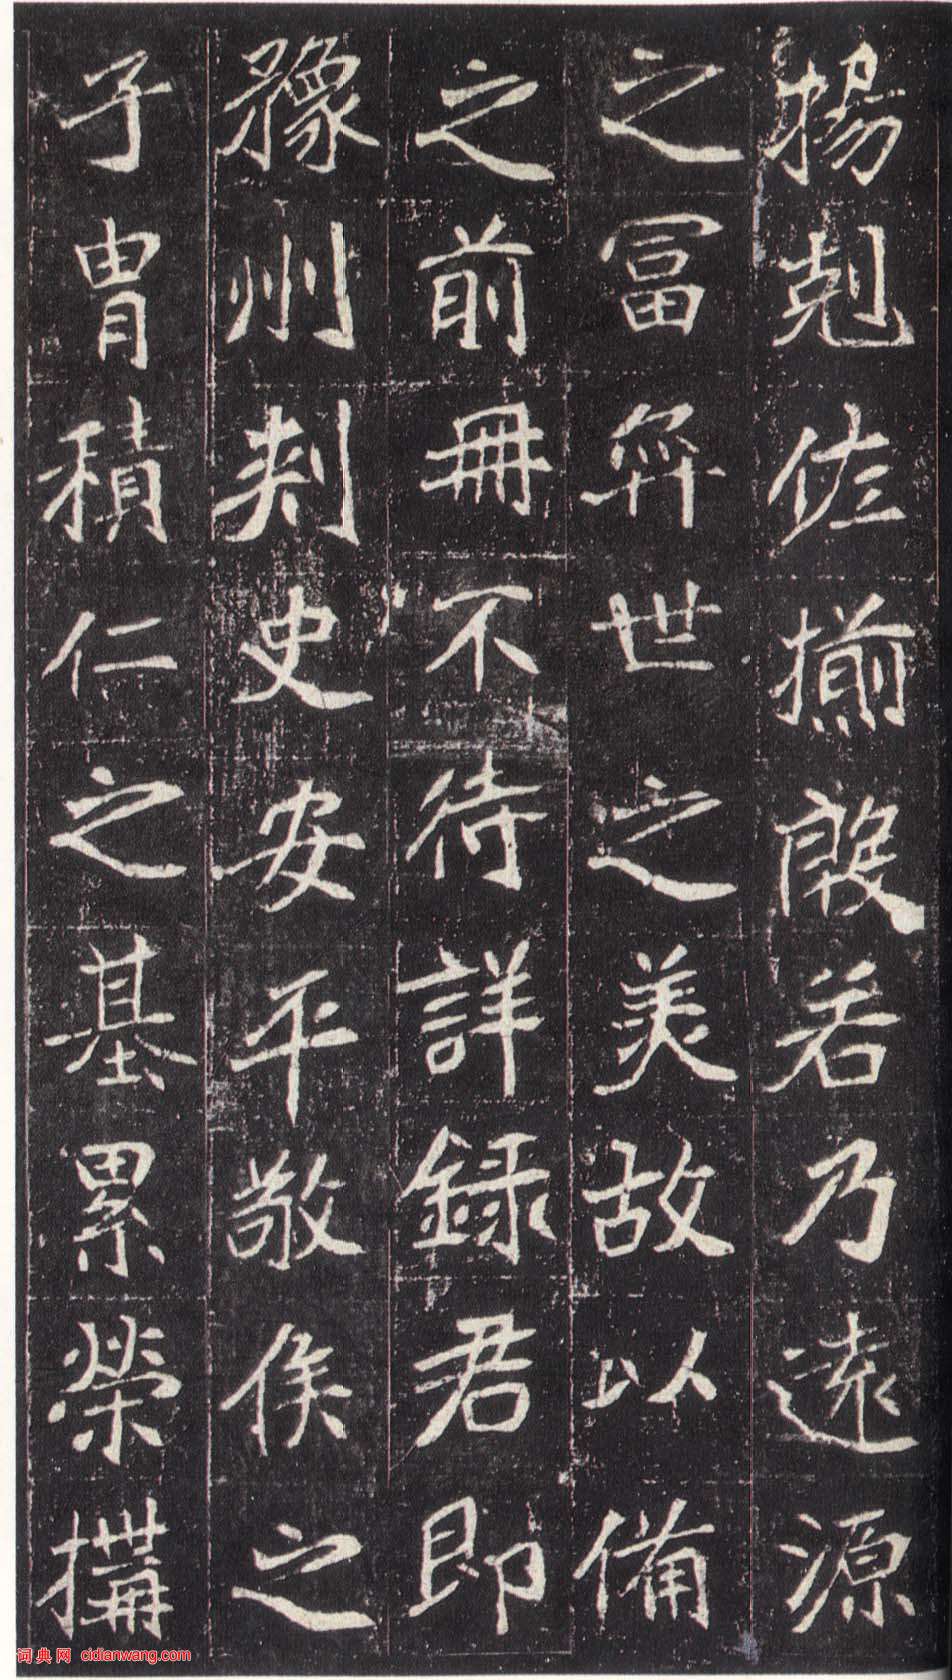 揚剋佐揃殷若乃遠源
之冨弈世之美故以備
之前冊不待詳録君即
豫州刺史安平敬侯之
子胄積仁之基累榮搆
词典网 cidianwang.com